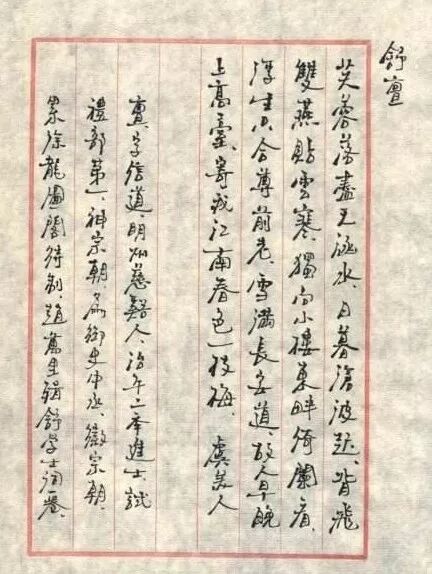 舒亶
芙蓉落盡天涵水、日暮滄波起、背飛
雙燕貼雲寒、獨向小樓東畔倚闌看、
浮生只合尊前老、雪滿長安道、故人早晚
上高臺、寄我江南春色一枝梅、 虞美人
亶、字信道、明州慈谿人、治平二年進士、試
禮部第一、神宗朝、為御史中丞、徽宗朝、
累除龍圖閣待制、趙萬里輯舒學士詞一卷、